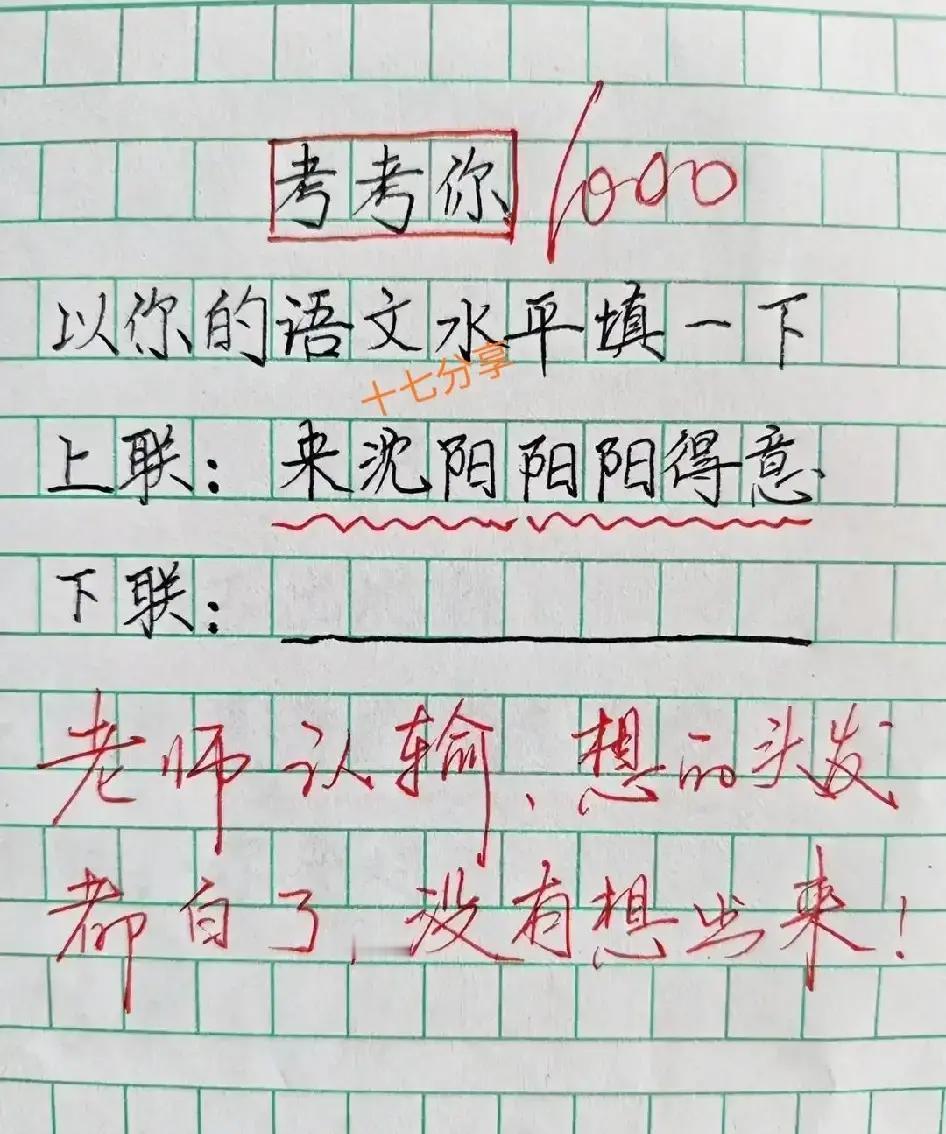 考考你 1000
以你的语文水平填一下
十七分享
上联：来沈阳阳阳得意
下联：
老师认输、想的头发
都白了，没有想出来！